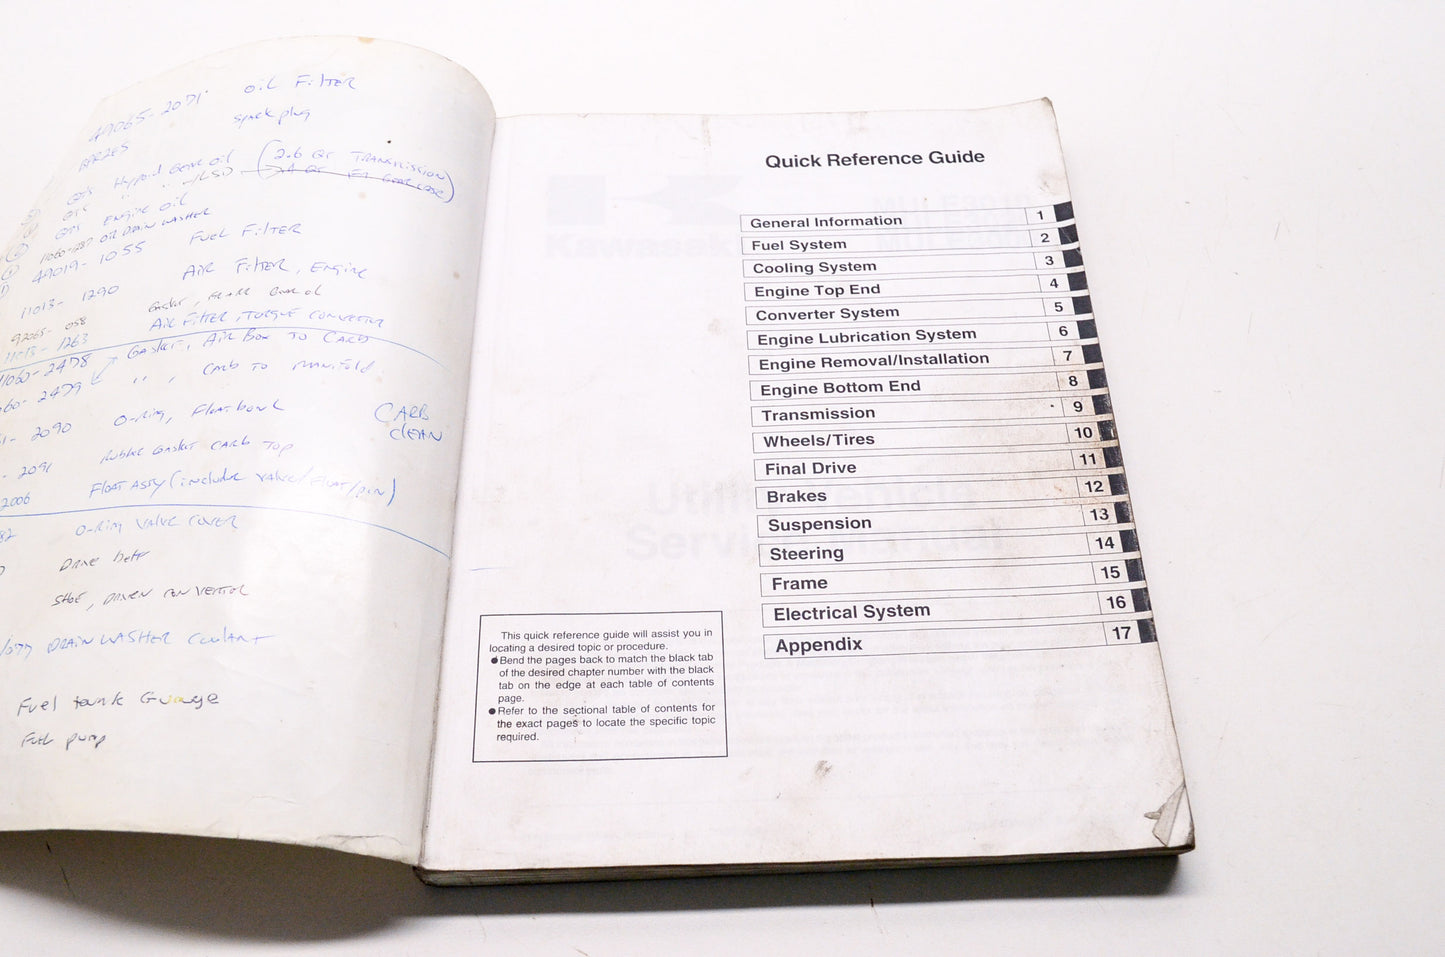 49065-2071 oil Filter
BPR2ES spark plug
QTS Hypoid Gear oil (2.6 QT TRANSMISSION
QTS ENGINE OIL
11060-1287 OIL DRAIN WASHER
49019-1055 Fuel Filter
11013-1290 AIR Filter, Engine
92065-058 Gasket,
11013-1263 AIR Filter, TORQUE CONVERTER
11060-2478 Gasket, AIR Box TO CARB
060-2479 " , CARB TO MANIFOLD
2090 O-Ring, Float bowl
CARB
CLEAN
2091 Rubber Gasket CARB TOP
2006 FLOAT ASSY (include VALVE/FLOAT/pin)
O-Ring VALVE COVER
Drive belt
SHOE, DRIVEN CONVERTOR
DRAIN WASHER COOLANT
Fuel tank Guage
Fuel pump
Quick Reference Guide
General Information 1
Fuel System 2
Cooling System 3
Engine Top End 4
Converter System 5
Engine Lubrication System 6
Engine Removal/Installation 7
Engine Bottom End 8
Transmission 9
Wheels/Tires 10
Final Drive 11
Brakes 12
Suspension 13
Steering 14
Frame 15
Electrical System 16
Appendix 17
This quick reference guide will assist you in
locating a desired topic or procedure.
●Bend the pages back to match the black tab
of the desired chapter number with the black
tab on the edge at each table of contents
page.
●Refer to the sectional table of contents for
the exact pages to locate the specific topic
required.
Kawasaki
Utility Vehicle
Service Manual